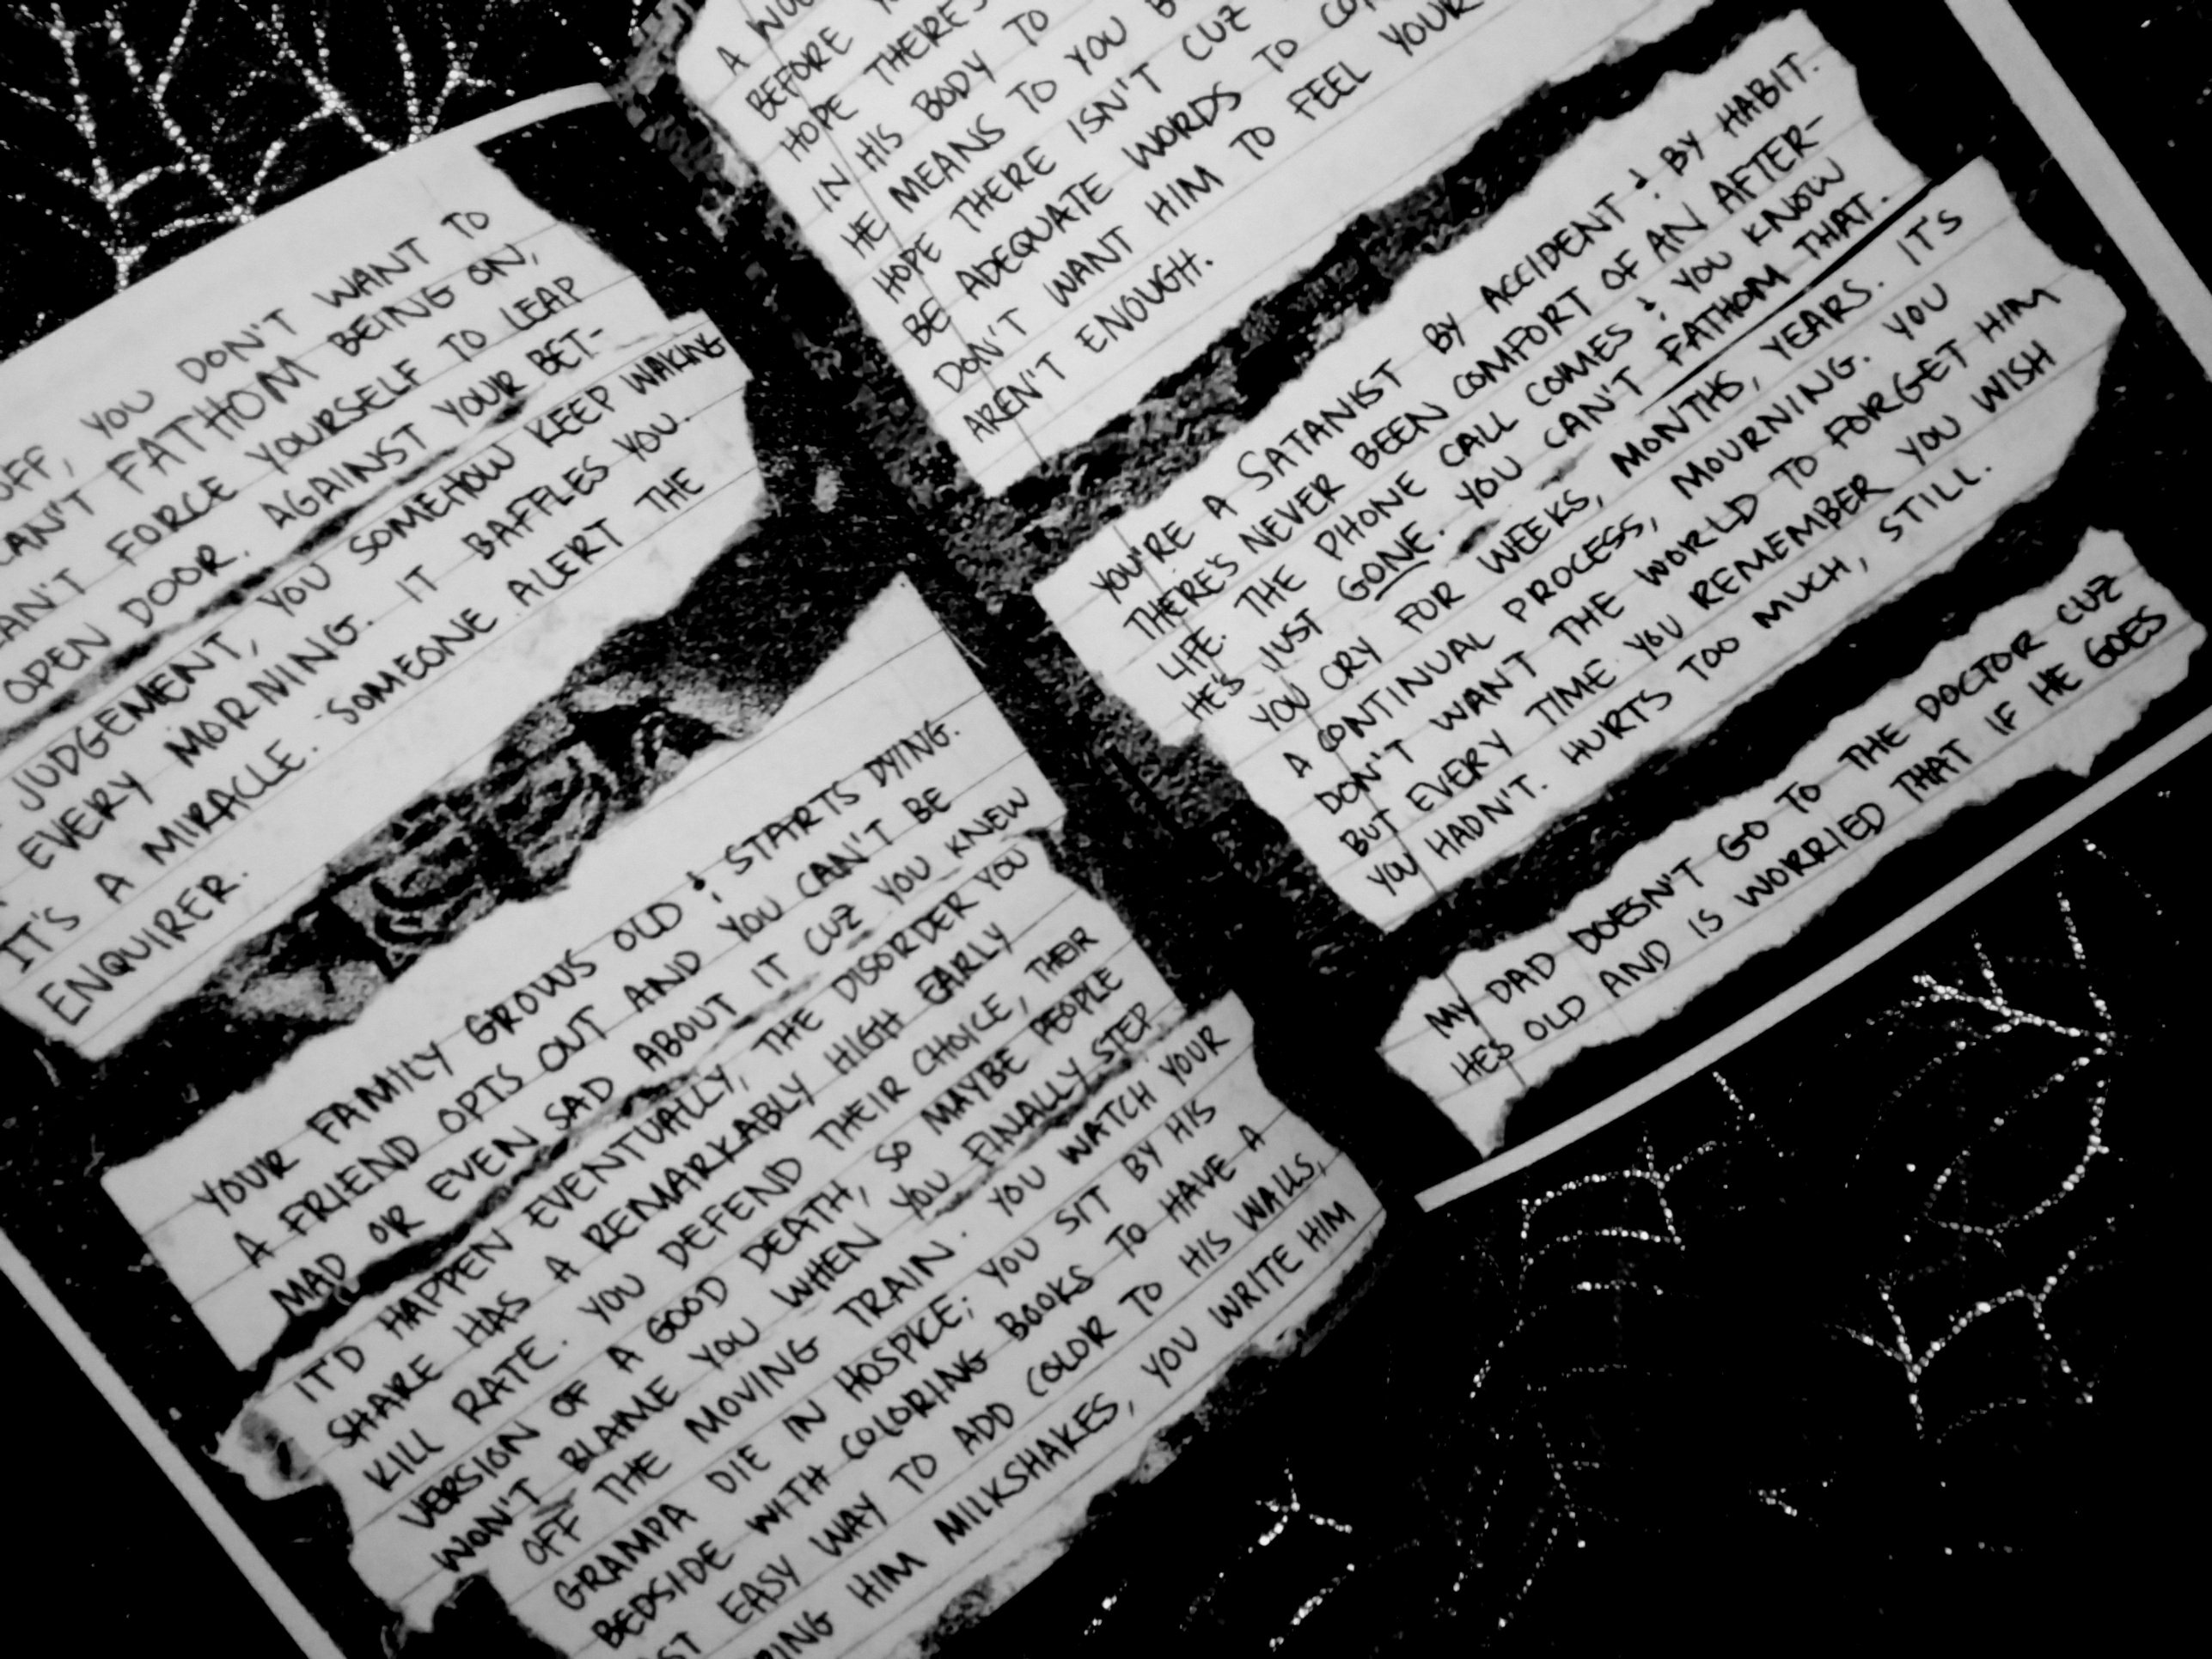 OFF, YOU DON'T WANT TO
CAN'T FATHOM BEING ON,
CAN'T FORCE YOURSELF TO LEAP
OPEN DOOR. AGAINST YOUR BET-
JUDGEMENT, YOU SOMEHOW KEEP WAKING
EVERY MORNING. IT BAFFLES YOU.
IT'S A MIRACLE. SOMEONE ALERT THE
ENQUIRER.
YOUR FAMILY GROWS OLD & STARTS DYING.
A FRIEND OPTS OUT AND YOU CAN'T BE
MAD OR EVEN SAD ABOUT IT CUZ YOU KNEW
IT'D HAPPEN EVENTUALLY, THE DISORDER YOU
SHARE HAS A REMARKABLY HIGH EARLY
KILL RATE. YOU DEFEND THEIR CHOICE, THEIR
VERSION OF A GOOD DEATH, SO MAYBE PEOPLE
WON'T BLAME YOU WHEN YOU FINALLY STEP
OFF THE MOVING TRAIN. YOU WATCH YOUR
GRAMPA DIE IN HOSPICE; YOU SIT BY HIS
BEDSIDE WITH COLORING BOOKS TO HAVE A
EASY WAY TO ADD COLOR TO HIS WALLS,
HIM MILKSHAKES, YOU WRITE HIM
A
BEFORE
HOPE THERE'S
IN HIS BODY TO
HE MEANS TO YOU
HOPE THERE ISN'T CUZ
BE ADEQUATE WORDS TO
DON'T WANT HIM TO FEEL YOUR
AREN'T ENOUGH.
YOU'RE A SATANIST BY ACCIDENT & BY HABIT.
THERE'S NEVER BEEN COMFORT OF AN AFTER-
LIFE. THE PHONE CALL COMES & YOU KNOW
HE'S JUST GONE. YOU CAN'T FATHOM THAT.
YOU CRY FOR WEEKS, MONTHS, YEARS. IT'S
A CONTINUAL PROCESS, MOURNING. YOU
DON'T WANT THE WORLD TO FORGET HIM
BUT EVERY TIME YOU REMEMBER YOU WISH
YOU HADN'T. HURTS TOO MUCH, STILL.
MY DAD DOESN'T GO TO THE DOCTOR CUZ
HES OLD AND IS WORRIED THAT IF HE GOES